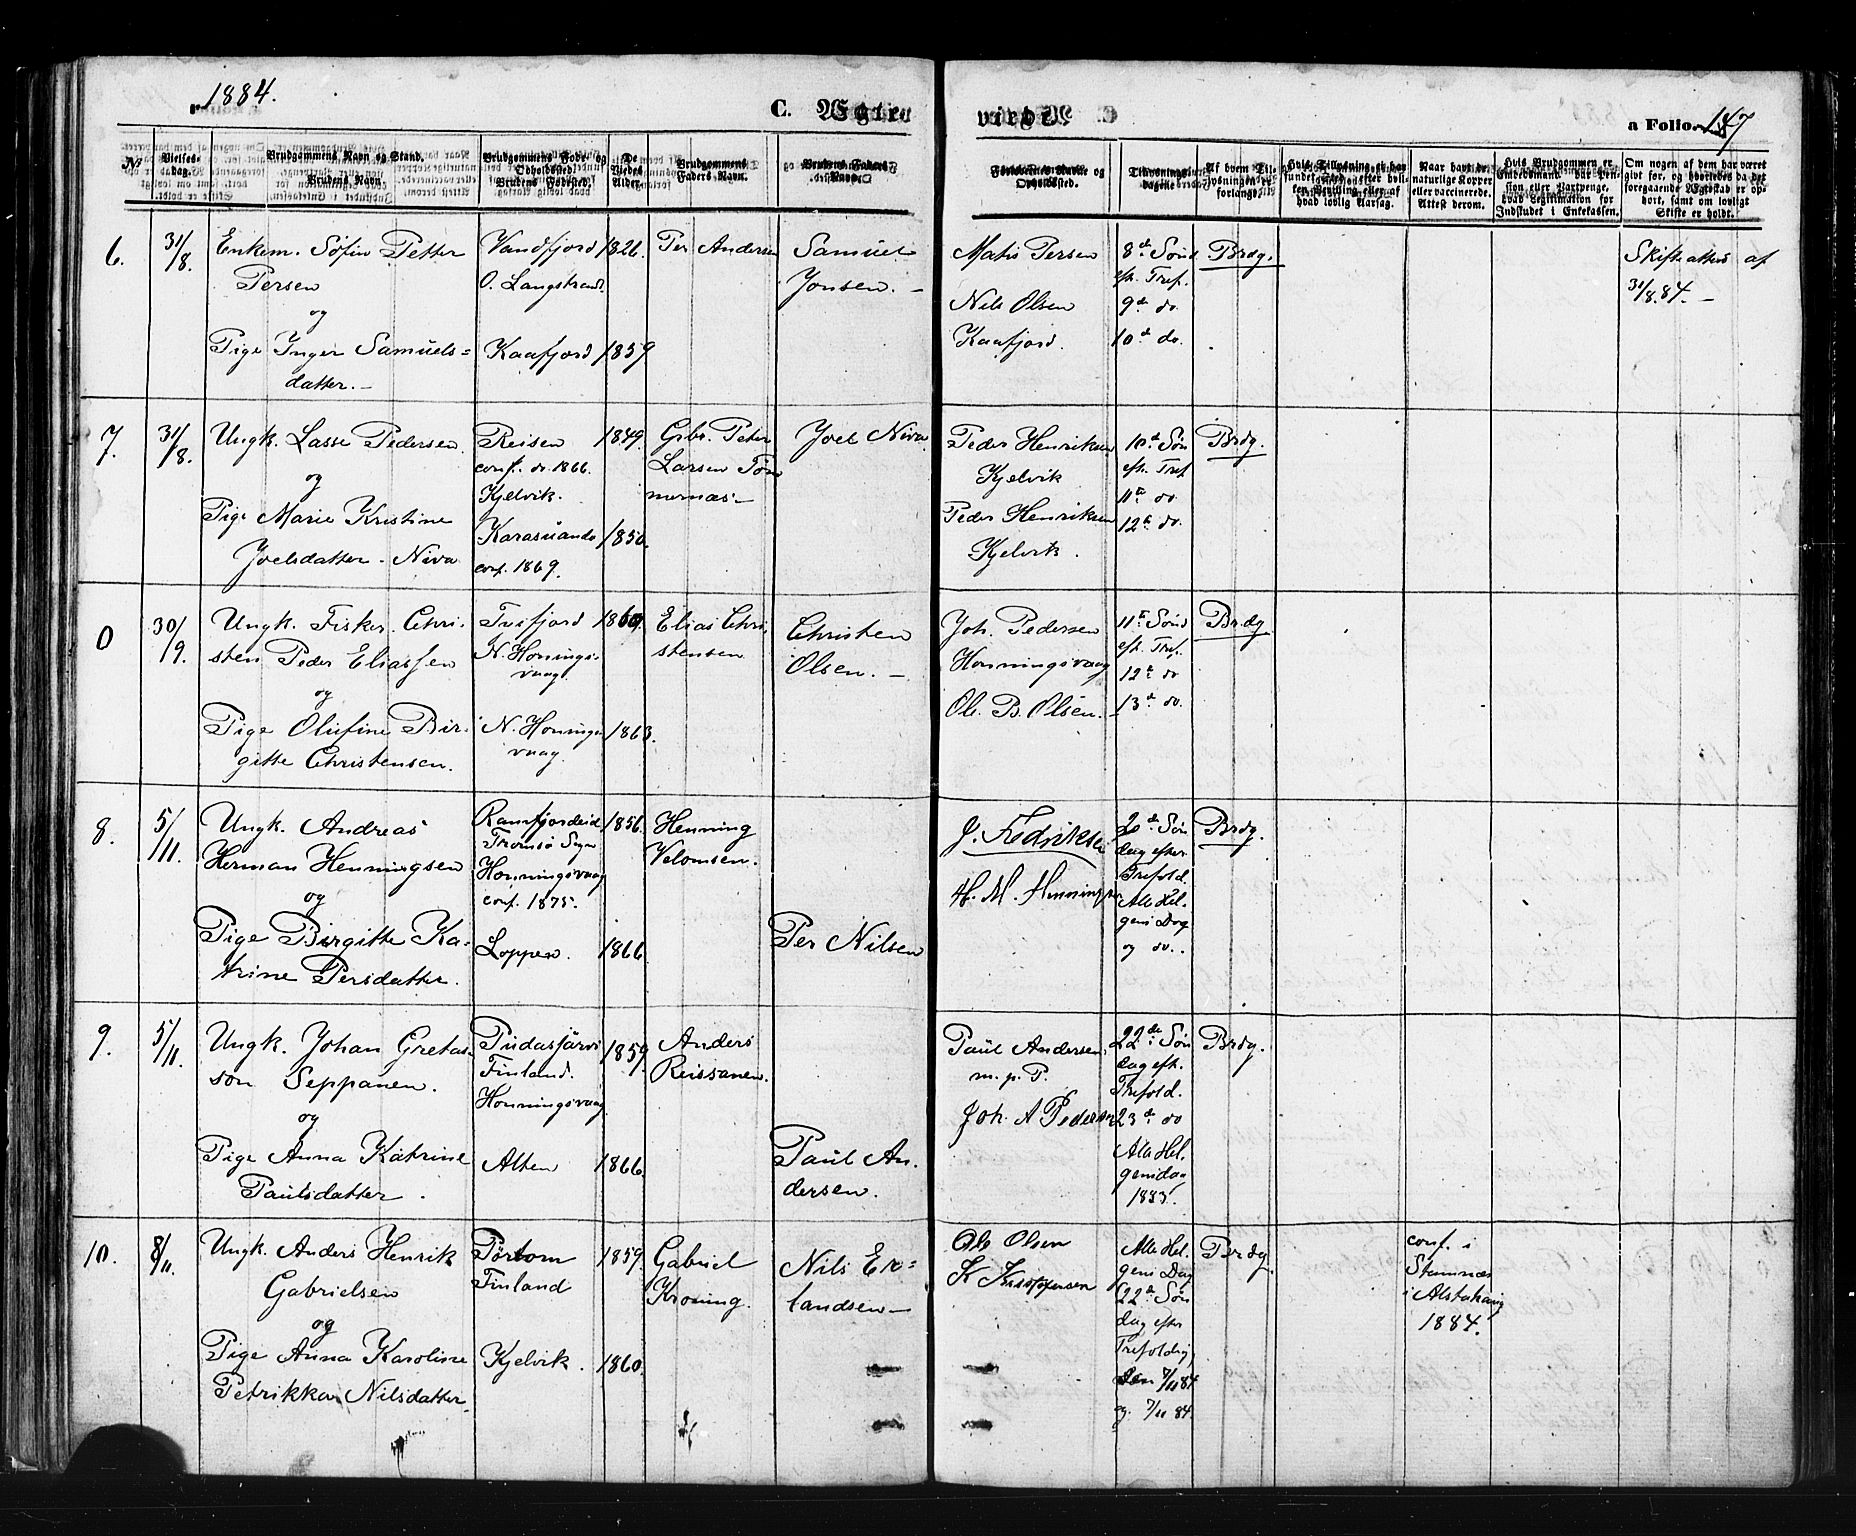 1884.
C. Ægte
viede
a Folio. 147
No
Vielses-
dag.
Brudgommens Navn og Stand.
Brudens Navn.
Brudgommens Føde- og
Opholdssted.
Brudens Fødested.
De
Viedes
Alder.
Brudgommens
Faders Navn.
Brudens Faders
Navn.
Forlovernes Navne og
Opholdssted.
Tillysnings-
dagene
Af hvem Til-
lysningen er
forlangt.
Hvis Tillysning ei har
fundet Sted, efter hvil-
ken Bevilling eller af
hvad lovlig Aarsag.
Naar havt de
naturlige Kopper
eller vaccinerede.
Attest derom.
Hvis Brudgommen er
Embedsmand har Pen-
sion eller Vartpenge,
hvad Legitimation for
Indskudet i Enkekassen.
Om nogen af dem har været
gift før, og hvorledes da det
foregaaende Ægteskab er op-
hørt, samt om lovligt
Skifte er holdt.
6.
31/8.
Enkem. Søfin Petter
Persen
og
Pige Inger Samuels=
datter.-
Vandfjord
O. Langstrand.
Kaafjord
1826.
1859
Per Andersen
Samuel
Jonsen. -
Matis Persen
Nils Olsen
Kaafjord.
8d Sønd
eft. Tref.
9d do.
10d do.
Brdg.
Skifteattest af
31/8.84.-
7.
31/8.
Ungk. Lasse Pedersen.
og
Pige Marie Kristine
Joelsdatter. Niva
Reisen
conf. do. 1866.
Kjelvik.
Karasuando
conf. 1869.
1849.
1850.
Grbr. Peter
Larsen Tøm
mernæs-
Joel Niva
Peder Henriksen
Kjelvik
Peder Henriksen
Kjelvik.
10d Søn
eft. Tref
11te do.
12te do.
Brdg.
0
30/9.
Ungk. Fisker. Chri-
sten Peder Eliassen
og
Pige Olufine Bir-
gitte Christensen.
Tufjord
N. Honnings-
vaag.
N. Honnings
vaag.
1860.
1863.
Elias Chri-
stensen
Christen
Olsen. -
Joh. Pedersen
Honningsvaag
Ol. B. Olsen.-
11te Sønd
eft. Tref.
12te do
13d do.
Brdg.
8.
5/11.
Ungk. Andreas
Herman Henningsen
og
Pige Birgitte Ka-
trine Persdatter.
Ramfjordeid
Tromsø Sogn
Honningsvaag
conf. 1875.
Loppen.
1856.
1866.
Henning
Velomsen.
Per Nilsen
J. Fredriksen
H. M. Henningsen
20de Søn
dag efter
Trefold.
Alle Hel-
gens Dag
og do..
Brdg.
9.
5/11.
Ungk. Johan Gretas-
son Seppanen.
og
Pige Anna Katrine
Paulsdatter.
Pudasjärvi
Finland.
Honningsvaag
Alten
1859.
1866.
Anders
Reissanen.
Paul An-
dersen.
Paul Andersen.
m. p. P.
Joh. A Pedersen
22de Søn
dag eft.
Trefold.
23d do
Alle Hel-
gensdag
1883.
Brdg.
10.
8/11.
Ungk. Anders Henrik
Gabrielsen
og
Pige Anna Karoline
Petrikka Nilsdatter.
Pørtom
Finland
Kjelvik.
1859.
1860.
Gabriel
Kroning.
Nils Er=
landsen-
Ole Olsen
Alle Hel-
gens Dag
22de Søn
dag efter
Trefoldig
den 7/11 84
og. 7/11 84.
Brdg.
conf. i
Stamnæs
i Alstahaug
1884.